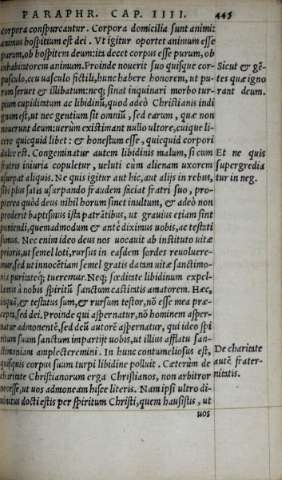 PARAPHR. CAP. IIII. 445
corpora conspurcantur. Corpora domicilia sunt animi:
animus hospitium est dei. Vt igitur oportet animum esse
purum, ob hospitem deum: ita decet corpus esse purum, ob
inhabitatorem animum. Proinde nouerit suo quisque cor-
pusculo, ceu uasculo fictili, hunc habere honorem, ut pu-
rum seruet & illibatum: neq; sinat inquinari morbo tur-
pium cupiditatum ac libidinū, quod adeò Christianis indi
gnum est, ut nec gentium sit omniū, sed earum, quæ non
nouerunt deum: uerùm existimant nullo ultore, cuique li-
cere quicquid libet: & honestum esse, quicquid corpori
dulce est. Congeminatur autem libidinis malum, si cum
fratris iniuria copuletur, ueluti cùm alienam uxorem
usurpat aliquis. Ne quis igitur aut hic, aut alijs in rebus,
sibi plus satis usurpando fraudem faciat fratri suo, pro-
pterea quòd deus nihil horum sinet inultum, & adeò non
proderit baptismus ista patrātibus, ut grauius etiam sint
puniendi, quemadmodum & antè diximus uobis, ac testati
sumus. Nec enim ideo deus nos uocauit ab instituto uitæ
prioris, ut semel loti, rursus in easdem sordes reuoluere-
mur, sed ut innocētiam semel gratis datam uitæ sanctimo-
nia puritateq; tueremur. Neq; fœditate libidinum expel-
lamus à nobis spiritū sanctum castitatis amatorem. Hæc,
inquā, & testatus sum, & rursum testor, nō esse mea præ-
cepta, sed dei. Proinde qui aspernatur, nō hominem asper-
natur admonentē, sed deū autorē aspernatur, qui ideo spi
ritum suum sanctum impartijt uobis, ut illius afflatu san-
ctimoniam amplecteremini. In hunc contumeliosus est,
quisquis corpus suum turpi libidine polluit. Cæterùm de
charitate Christianorum erga Christianos, non arbitror
necesse, ut uos admoneam hisce literis. Nam ipsi ultro di-
uinitus docti estis per spiritum Christi, quem hausistis, ut
uos
Sicut & gē-
tes quæ igno
rant deum.
Et ne quis
supergredia
tur in neg.
De charitate
autē frater-
nitatis.